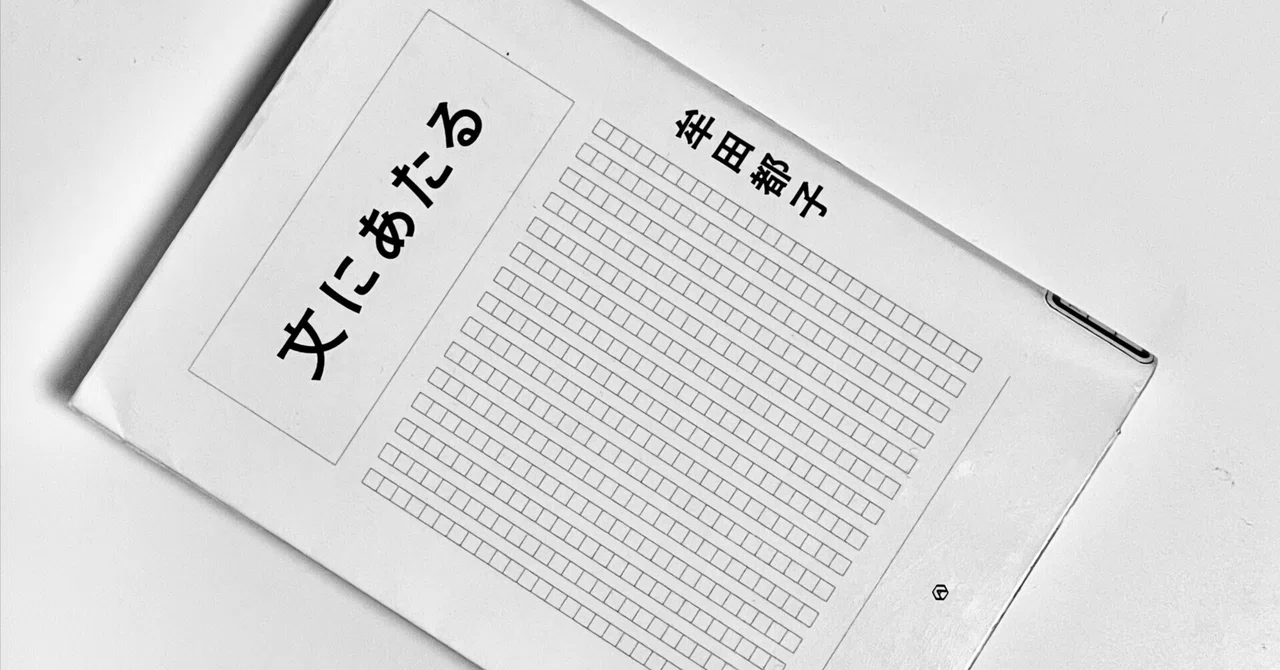 文にあたる
牟田都子